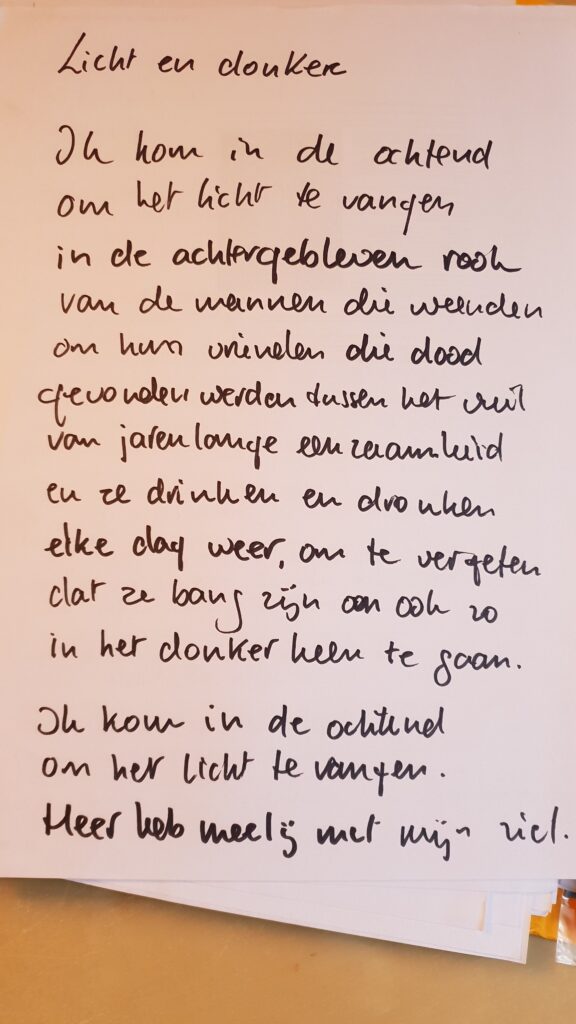 Licht en donker
Ik kom in de ochtend
om het licht te vangen
in de achtergebleven rook
van de mannen die weenden
om hun vrienden die dood
gevonden werden tussen het vuil
van jarenlange eenzaamheid
en ze drinken en dronken
elke dag weer, om te vergeten
dat ze bang zijn om ook zo
in het donker heen te gaan.
Ik kom in de ochtend
om het licht te vangen.
Heer heb meelij met mijn ziel.